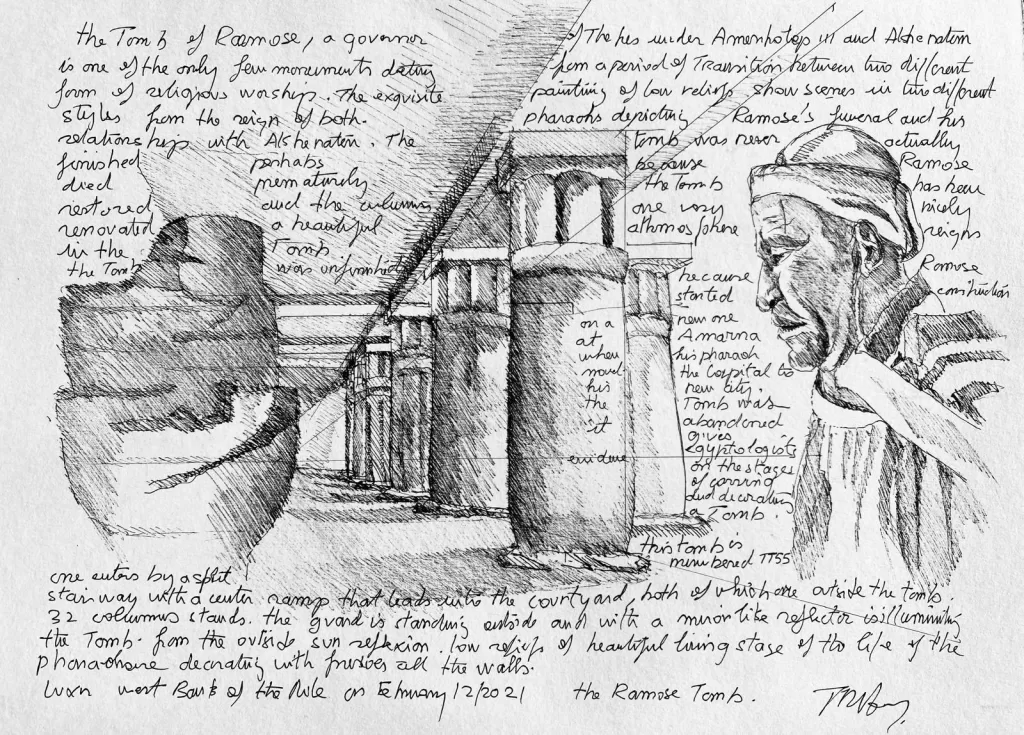 the Tomb of Ramose, a governor of Thebes under Amenhotep III and Akhenaten
is one of the only few monuments dating from a period of Transition between two different
form of religious worship. The exquisite painting of low reliefs show scenes in two different
styles from the reign of both. pharaohs depicting Ramose's funeral and his
relationship with Akhenaten. The tomb was never actually
finished perhabs because Ramose
died prematurely the Tomb has been
restored and the columns one very nicely
renovated a beautiful athmosphere reigns
in the Tomb
the Tomb was unfinished because Ramose
started construction
on a new one
at Amarna
when his pharaoh
moved the Capital to
his new city.
the Tomb was
it abandoned
gives
evidence egyptologists
on the stages
of carving
and decorating
a Tomb.
this tomb is
numbered TT55
one enters by a split
stairway with a center ramp that leads into the courtyard, both of which are outside the tomb.
32 columns stands. the guard is standing outside and with a mirror like reflector is illuminating
the Tomb. from the outside sun reflexion. low reliefs of beautiful living stage of the life of the
pharaohone decorating with frescos all the walls.
Luxor west Bank of the Nile on February 12/2021 the Ramose Tomb.